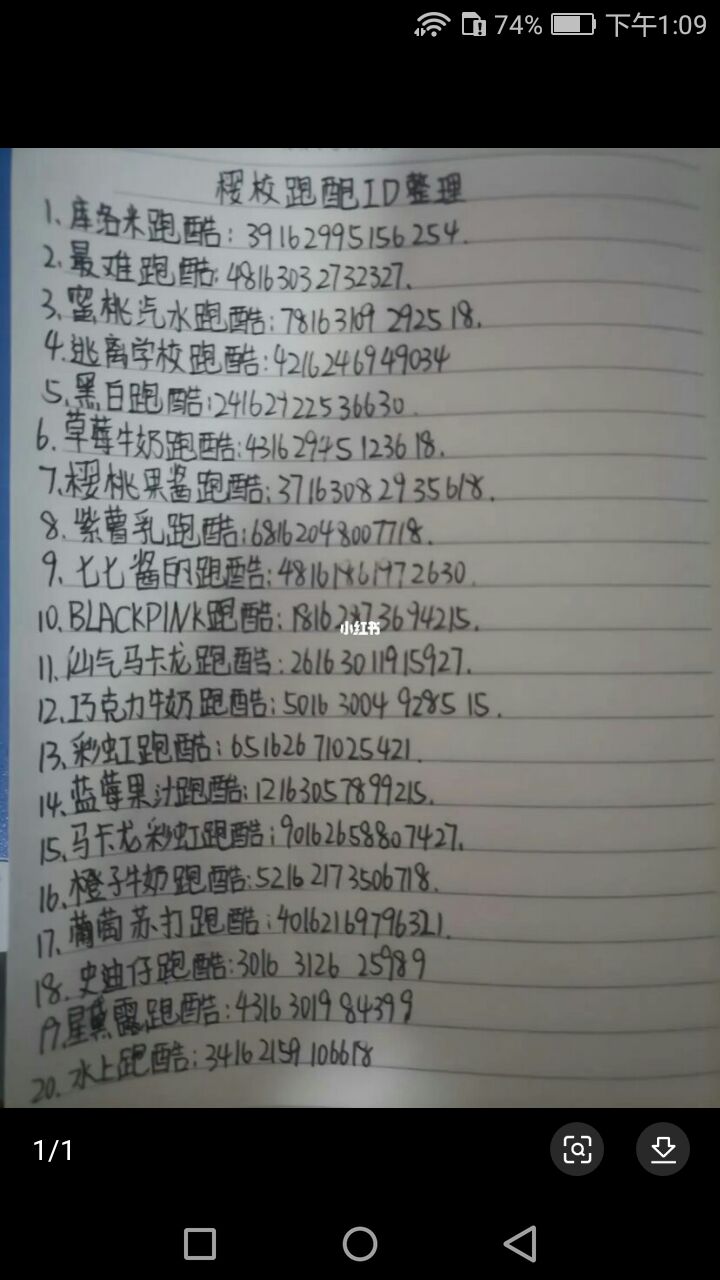 74% 下午1:09
樱校跑酷ID整理
1、库洛米跑酷：39162995156254.
2、最难跑酷：48163032732327.
3、蜜桃汽水跑酷：78163169292518.
4、逃离学校跑酷：42162469 49034
5、黑白跑酷：24162922536630.
6、草莓牛奶跑酷：43162945123618.
7、樱桃果酱跑酷：37163082935618.
8、紫薯乳跑酷：68162048007718.
9、七七酱的跑酷：48161861972630.
10、BLACKPINK跑酷：
小红书
11、仙气马卡龙跑酷：26163011915927.
12、巧克力牛奶跑酷：5016 3004 9285 15.
13、彩虹跑酷：65162671025421.
14、蓝莓果汁跑酷：12163057899215.
15、马卡龙彩虹跑酷：90162658807427.
16、橙子牛奶跑酷：52162173506718.
17、葡萄苏打跑酷：40162169796321.
18、史迪仔跑酷：3016 3126 25989
19、星黛露跑酷：4316 3019 84399
20、水上跑酷：34162159106618
1/1